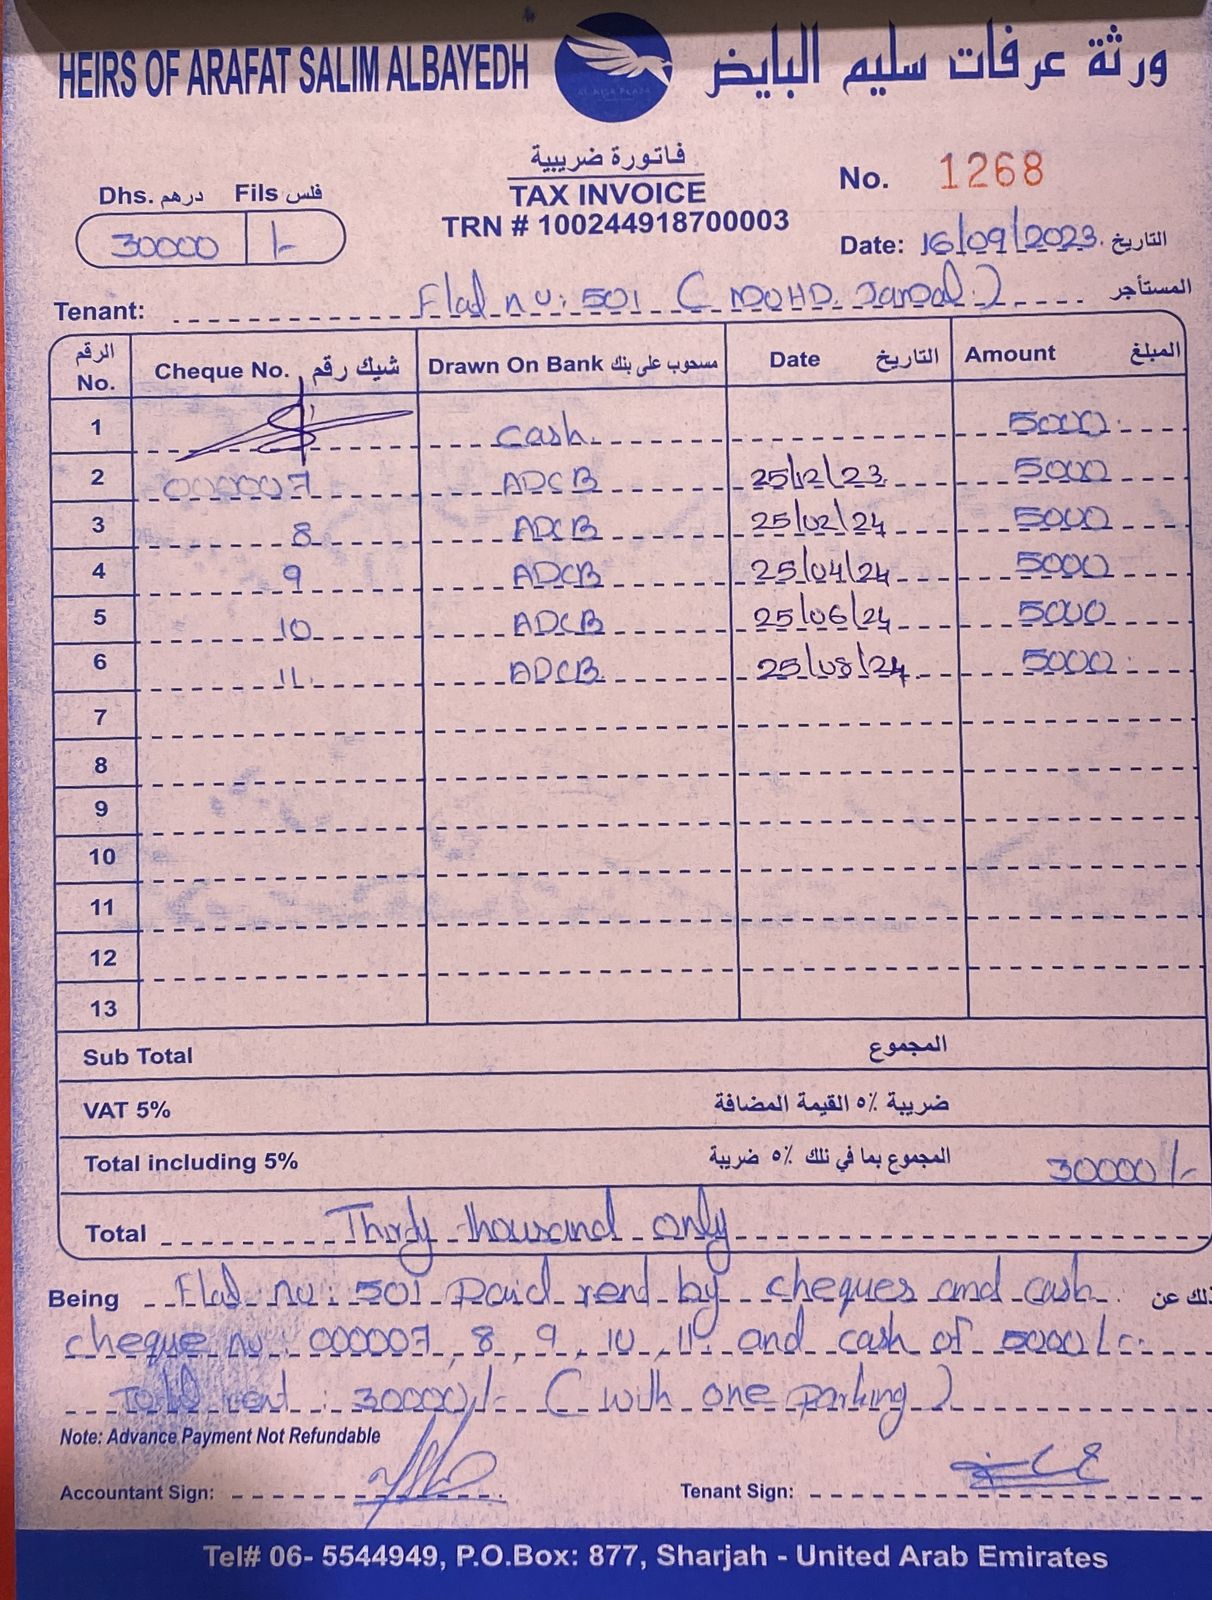 HEIRS OF ARAFAT SALIM ALBAYEDH
ورثة عرفات سليم البايض
فاتورة ضريبية
TAX INVOICE
TRN # 100244918700003
Dhs. درهم Fils فلس
30000 /-
No. 1268
Date: 16/09/2023 التاريخ
Tenant: Flat no: 501 ( MOHD. Jamal ) المستأجر
الرقم No. Cheque No. شيك رقم Drawn On Bank مسحوب على بنك Date التاريخ Amount المبلغ
1 Cash 5000
2 000007 ADCB 25/12/23 5000
3 8 ADCB 25/02/24 5000
4 9 ADCB 25/04/24 5000
5 10 ADCB 25/06/24 5000
6 11 ADCB 25/08/24 5000
7
8
9
10
11
12
13
Sub Total المجموع
VAT 5% ضريبة ٥٪ القيمة المضافة
Total including 5% المجموع بما في تلك ٥٪ ضريبة 30000/-
Total Thirty thousand only
Being Flat no: 501 Paid rent by cheques and cash ذلك عن
cheque no: 000007, 8, 9, 10, 11. and cash of 5000/-
Total rent: 30000/- ( with one parking )
Note: Advance Payment Not Refundable
Accountant Sign: Tenant Sign:
Tel# 06- 5544949, P.O.Box: 877, Sharjah - United Arab Emirates